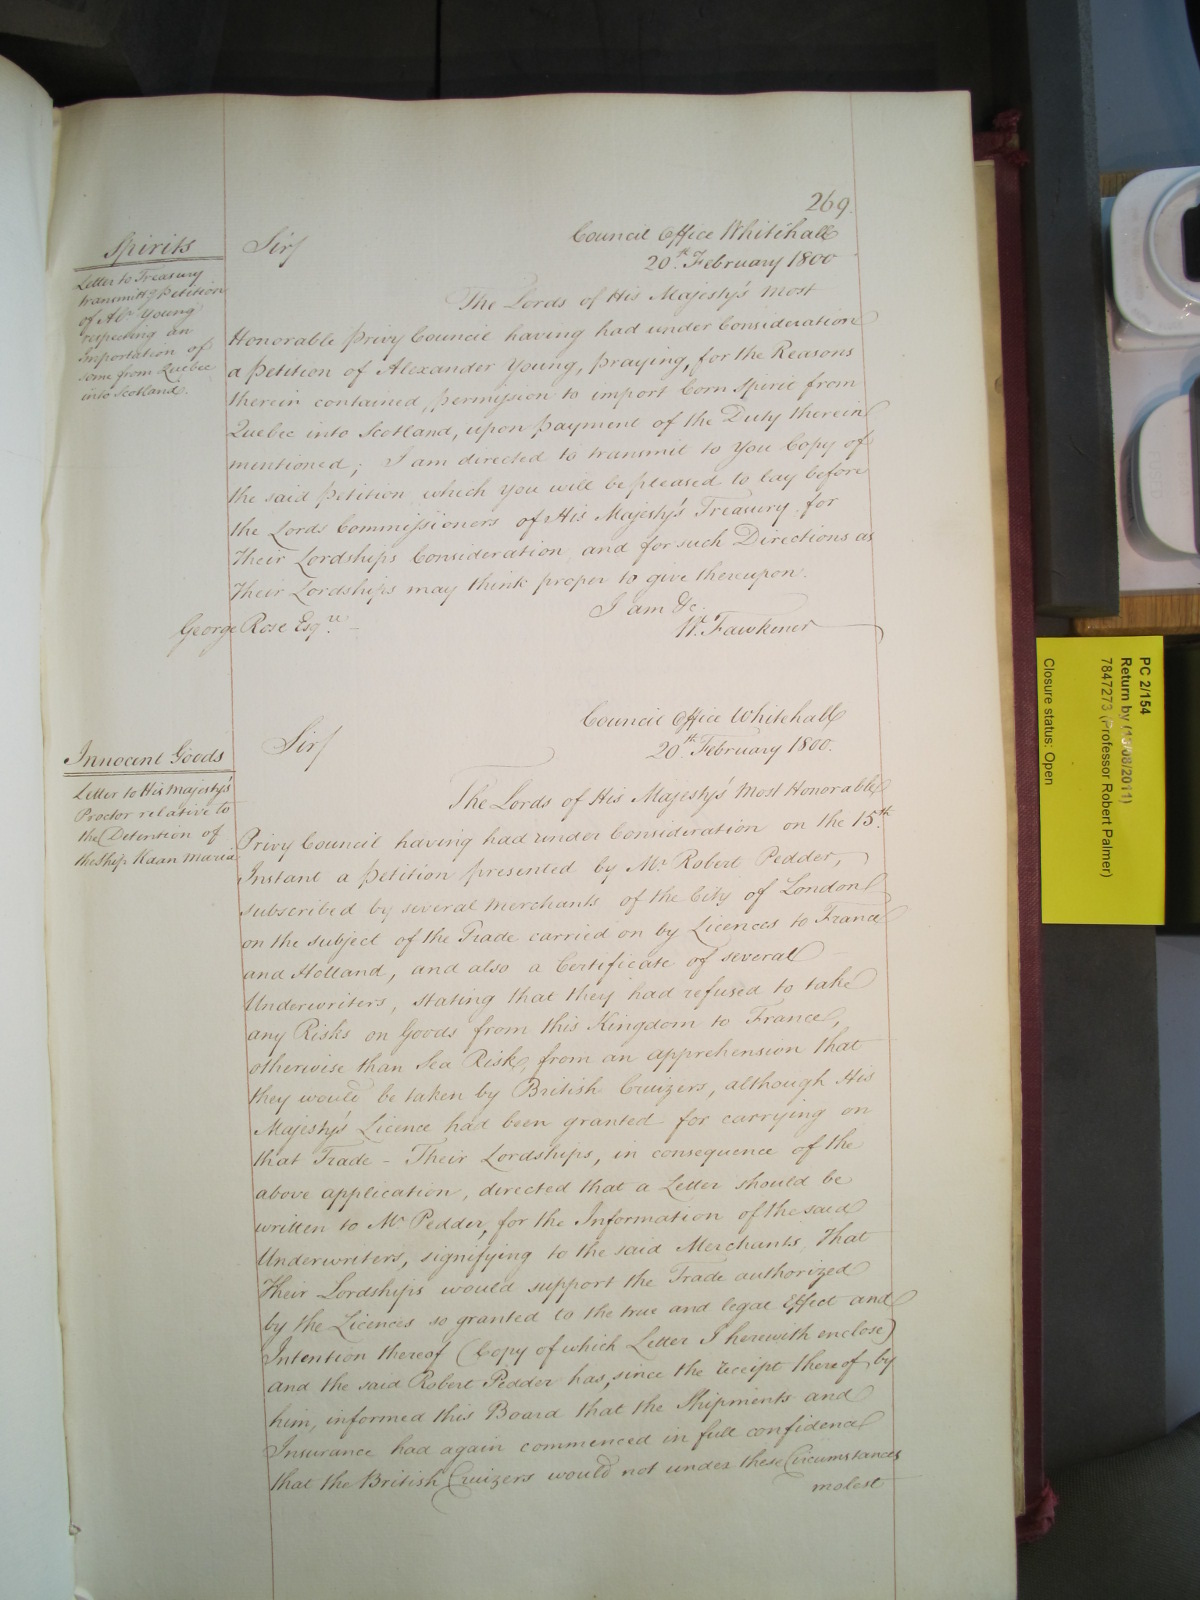 269.
Spirits
Letter to Treasury
transmittg Petition
of Alexr Young
respecting an
Importation of
some from Quebec
into Scotland.
Council Office Whitehall
20th February 1800
Sir/
The Lords of His Majesty's Most
Honorable Privy Council having had under Consideration
a Petition of Alexander Young, praying, for the Reasons
therein contained, permission to import Corn Spirit from
Quebec into Scotland, upon payment of the Duty therein
mentioned; I am directed to transmit to You Copy of
the said Petition which You will be pleased to lay before
the Lords Commissioners of His Majesty's Treasury for
Their Lordships Consideration and for such Directions as
Their Lordships may think proper to give thereupon.
I am &c.
W. Fawkener
George Rose Esqre
Council Office Whitehall
20th February 1800.
Sir/
Innocent Goods
Letter to His Majesty's
Proctor relative to
the Detention of
the ship Kaan Maria
The Lords of His Majesty's Most Honorable
Privy Council having had under Consideration on the 15th
Instant a Petition presented by Mr Robert Pedder,
subscribed by several Merchants of the City of London
on the subject of the Trade carried on by Licences to France
and Holland, and also a Certificate of several
Underwriters, stating that they had refused to take
any Risks on Goods from this Kingdom to France,
otherwise than Sea Risk, from an apprehension that
they would be taken by British Cruizers, although His
Majesty's Licence had been granted for carrying on
that Trade - Their Lordships, in consequence of the
above application, directed that a Letter should be
written to Mr Pedder, for the Information of the said
Underwriters, signifying to the said Merchants, That
Their Lordships would support the Trade authorized
by the Licences so granted to the true and legal Effect and
Intention thereof (Copy of which Letter I herewith enclose)
and the said Robert Pedder has, since the receipt thereof by
him, informed this Board that the Shipments and
Insurance had again commenced in full confidence
that the British Cruizers would not under these Circumstances
molest
PC 2/154
Return by (13/08/2011)
7847273 (Professor Robert Palmer)
Closure status: Open